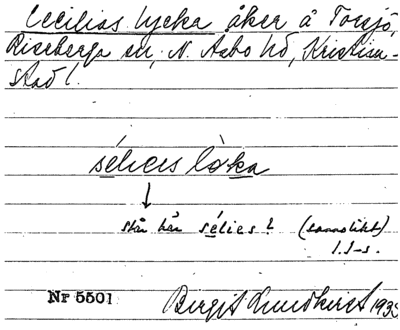 Cecilias lycka åker å Torsjö,
Riseberga sn, N. Åsbo hd, Kristian-
stad l.
sélies lòka
↓
står här sélies? (sannolikt)
I. I-s.
Nr 5501 Birgit Lundkvist 1935